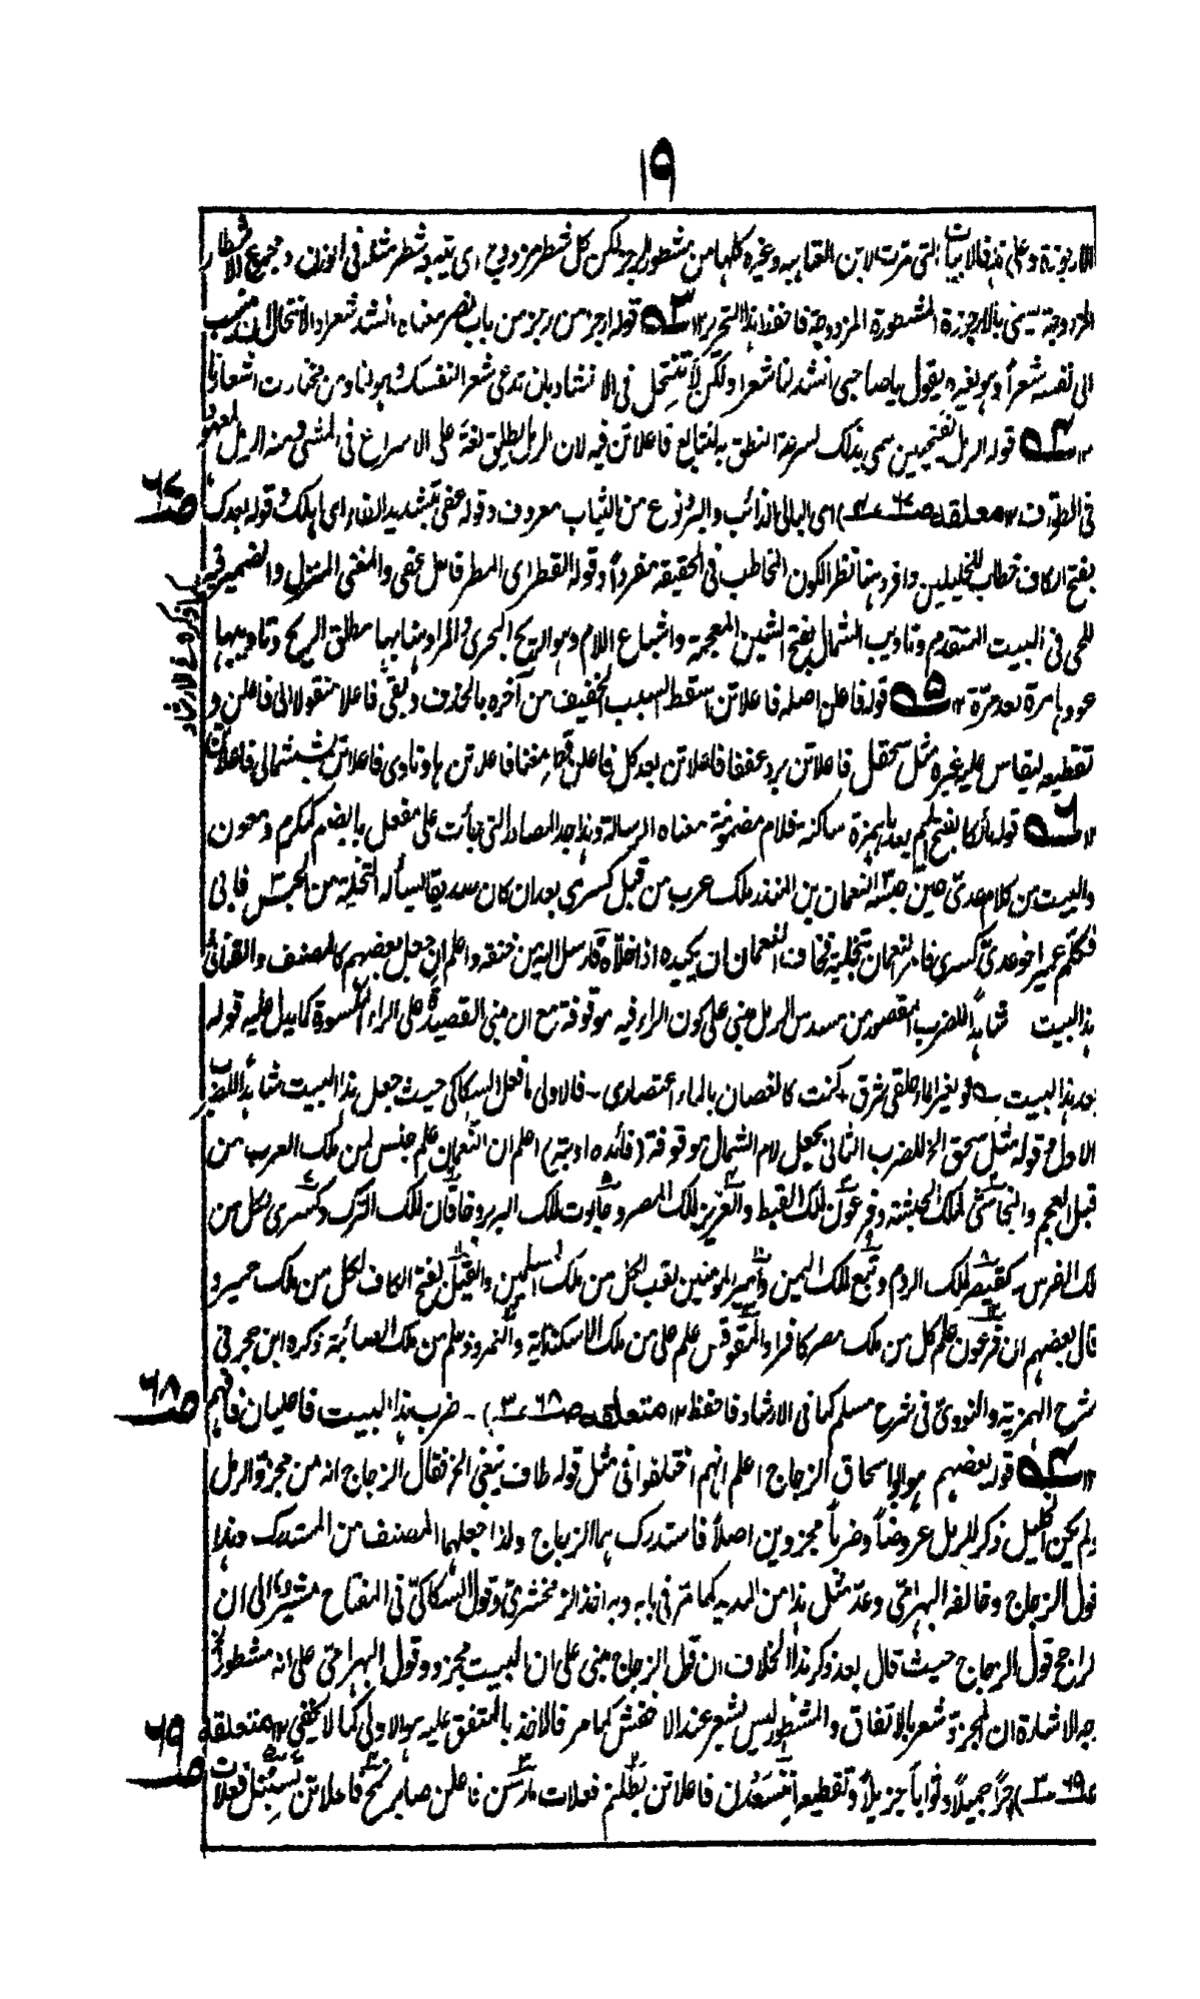 ١٩
الارجوزة وعلى هذا فالابيات التى مرت لابن العتاهيه وغيره كلها من مشطور الرجز لكن كل شطر مزدوج اى يتبعه شطر مثله فى الوزن ومجموع الاشطار
المزدوجة يسمى بالارجوزة المشطورة المزدوجة فاحفظ هذا التحرير ١٢ قوله ارجز من رجز من باب نصر معناه انشد شعرا والانتحال ان ينسب
الى نفسه شعراً وهو لغيره يقول يا صاحبى انشد لنا شعرا ولكن لا تنتحل فى الانشاد بان تدعى شعر النفسك وهو لنا ومن مختارت اشعارنا
١٢ قوله الرمل بفتحيين سمى بذلك لسرعة النطق به لتتابع فاعلاتن فيه لان الرمل يطلق لغة على الاسراع فى المشى ومنه الرمل المعهود
فى الطواف ١٢ متعلقه صـ ٦٧ اى البالى الذائب والبرد نوع من الثياب معروف وقوله عفى بتشديد الفاء اى اهلك قوله بعدك
صـ ٦٧
بفتح الكاف خطاب للخليلين وافرد هنا نظرا لكون المخاطب فى الحقيقة مفرداً وقوله القطر اى المطر فاعل عفى والمغنى المنزل والضمير فيه
كذا ذكره فى الارشاد
للحى فى البيت المتقدم وتاويب الشمال بفتح الشين المعجمة واشباع اللام وهو الريح البحرى والمراد هنا بها مطلق الريح وتاويبها
عودها مرة بعد مرة ١٢ قوله فاعلن اصله فاعلاتن اسقط السبب الخفيف من آخره بالحذف وبقى فاعلا منقولا الى فاعلن و
تقطيعه ليقاس عليه غيره مثل سحقل فاعلاتن برد عففا فاعلاتن بعدكل فاعلن قطر مغنا فاعلاتن هو وتاوى فاعلاتن بششمالى فاعلاتن
١٢ قوله مألكا بفتح الميم بعدها همزة ساكنة فلام مضمومة معناه الرسالة وهذا احد المصادر التى جاءت على مفعل بالضم كمكرم ومعون
والبيت من كلام عدى حين حبسه النعمان بن المنذر ملك عرب من قبل كسرى بعد ان كان صديقا ليسأله التخلية من الحبس فابى
فكلم عمير اخو عدى كسرى فامر النعمان بتخلية فخاف النعمان ان يكيده اذا خلاه فارسل اليه من خنقه واعلم ان جعل بعضهم كالمصنف والقنائى
هذا البيت شاهداً للضرب المقصور من مسدس الرمل مبنى على كون الراء فيه موقوفة مع ان مبنى القصيدة على الراء المكسورة كما يدل عليه قوله
بعد هذا البيت ـ لو بغير الماء حلقى شرق + كنت كالغصان بالماء اعتصارى ـ فالاولى ما فعل السكاكى حيث جعل هذا البيت شاهداً للضرب
الاول وقوله مثل سحق الخ للضرب الثانى بجعل لام الشمال موقوفة (فائده ادبية) اعلم ان النعمان علم جنس لمن ملك العرب من
قبل العجم والنجاشى لملك الحبشة وفرعون لملك القبط والعزيز لملك المصر وجالوت لملك البربر وخاقان لملك الترك وكسرى لكل من
ملك الفرس كقيصر لملك الروم وتبع لملك اليمن وامير المومنين لقب لكل من ملك المسلمين والقيل بفتح القاف لكل من ملك حمير و
قال بعضهم ان فرعون علم كل من ملك مصر كافرا والمقوقس علم على من ملك الاسكندرية والنمروذ علم من ملك الصائبة ذكره ابن حجر فى
شرح الهمزيه والنووى فى شرح مسلم كما فى الارشاد فاحفظ ١٢ متعلقه صـ ٦٨ ـ ضرب هذا البيت فاعليان فافهم
صـ ٦٨
١٢ قوله بعضهم هو ابو اسحاق الزجاج اعلم انهم اختلفوا فى مثل قوله طاف يبغى الخ فقال الزجاج انه من مجزو الرمل
ولم يكن الخليل ذكر للرمل عروضاً وضرباً مجزوين اصلاً فاستدرك هما الزجاج ولذا جعلهما المصنف من المستدرك هذا
قول الزجاج وخالفه البهرامى وعد مثل هذا من المديد كما مر فى بابه وبه اخذ الزمخشرى وقول السكاكى فى المفتاح مشير الى ان
الراجح قول الزجاج حيث قال بعد ذكر هذا الخلاف ان قول الزجاج مبنى على ان البيت مجزو وقول البهرامى على انه مشطور
وجه الاشارة ان المجزو شعر بالاتفاق والمشطور ليس بشعر عند الاخفش كما مر فالاخذ بالمتفق عليه هو الاولى كما لا يخفى ١٢ متعلقه
صـ ٦٩
صـ ٦٩ جزاً جميلاً وثواباً جزيلاً وتقطيعه فاعلاتن فعلات فاعلن فاعلاتن فعلات